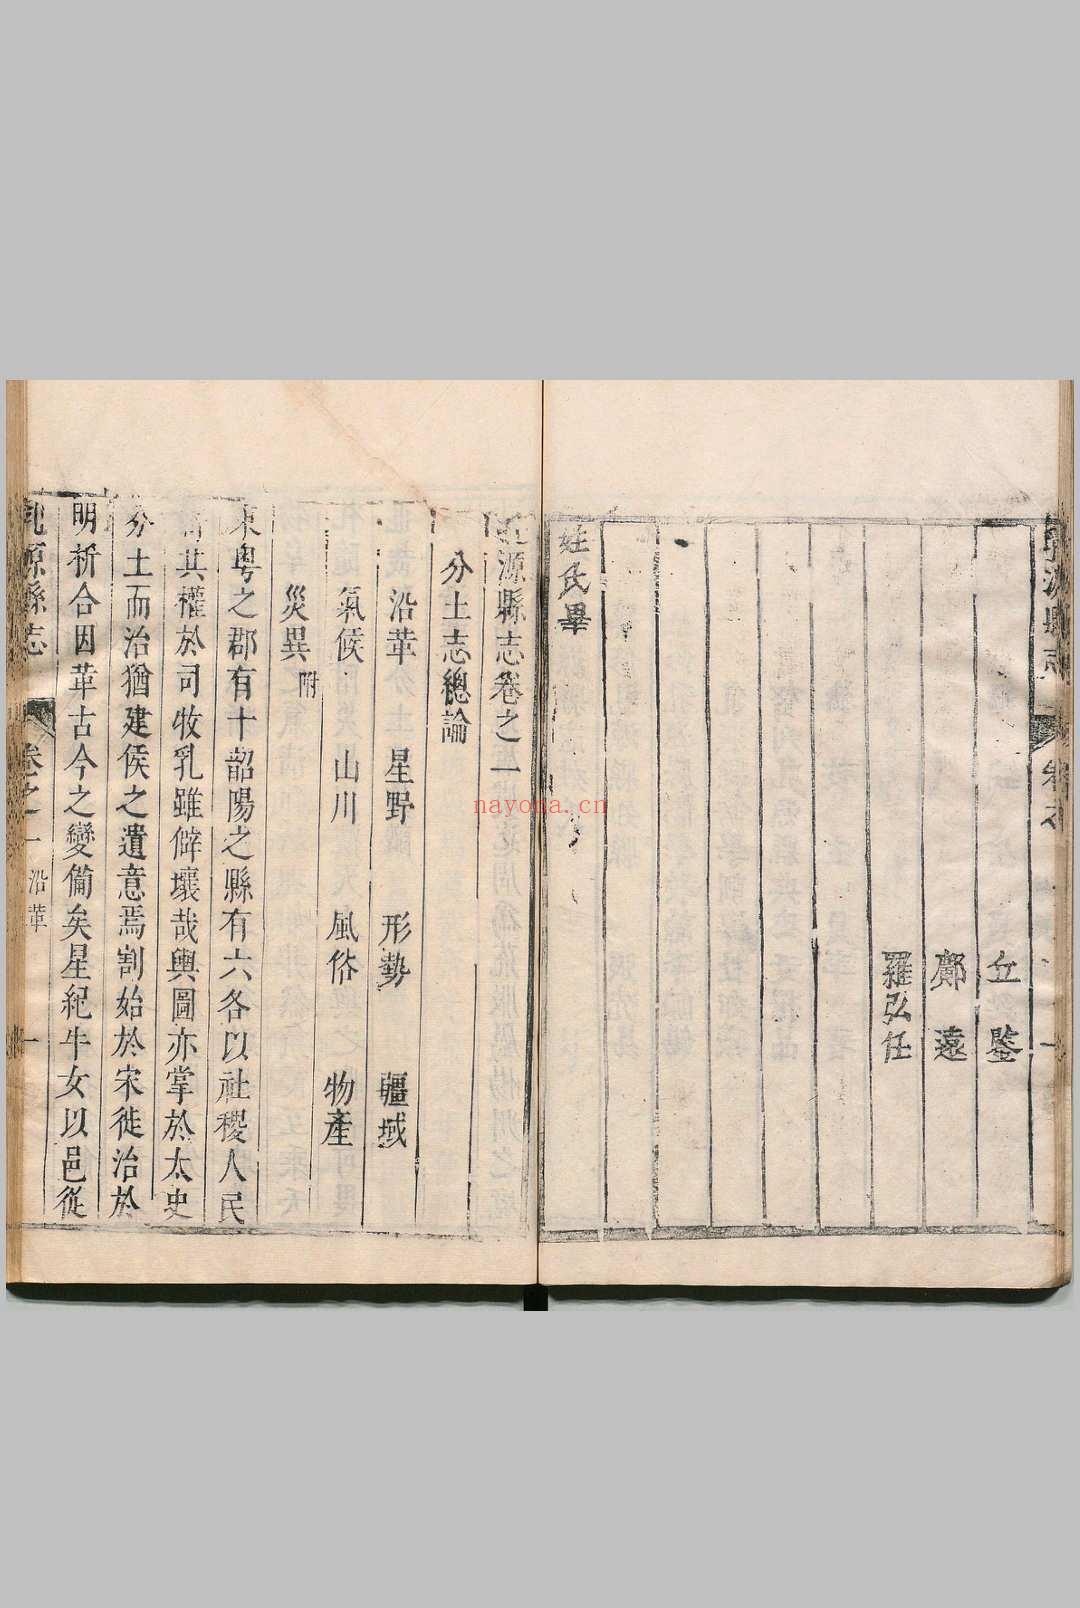 丘鑒
鄺遠
羅弘任
姓氏畢
源縣志卷之一
分土志總論
沿革 星野 形勢 疆域
氣候 山川 風俗 物產
災異附
東粵之郡有十韶陽之縣有六各以社稷人民
其權於司牧乳雖僻壤哉輿圖亦掌於太史
分土而治猶建侯之遺意焉割始於宋徙治於
明析合因革古今之變備矣星紀牛女以邑從
乳源縣志 卷之一 沿革 一
nayona.cn